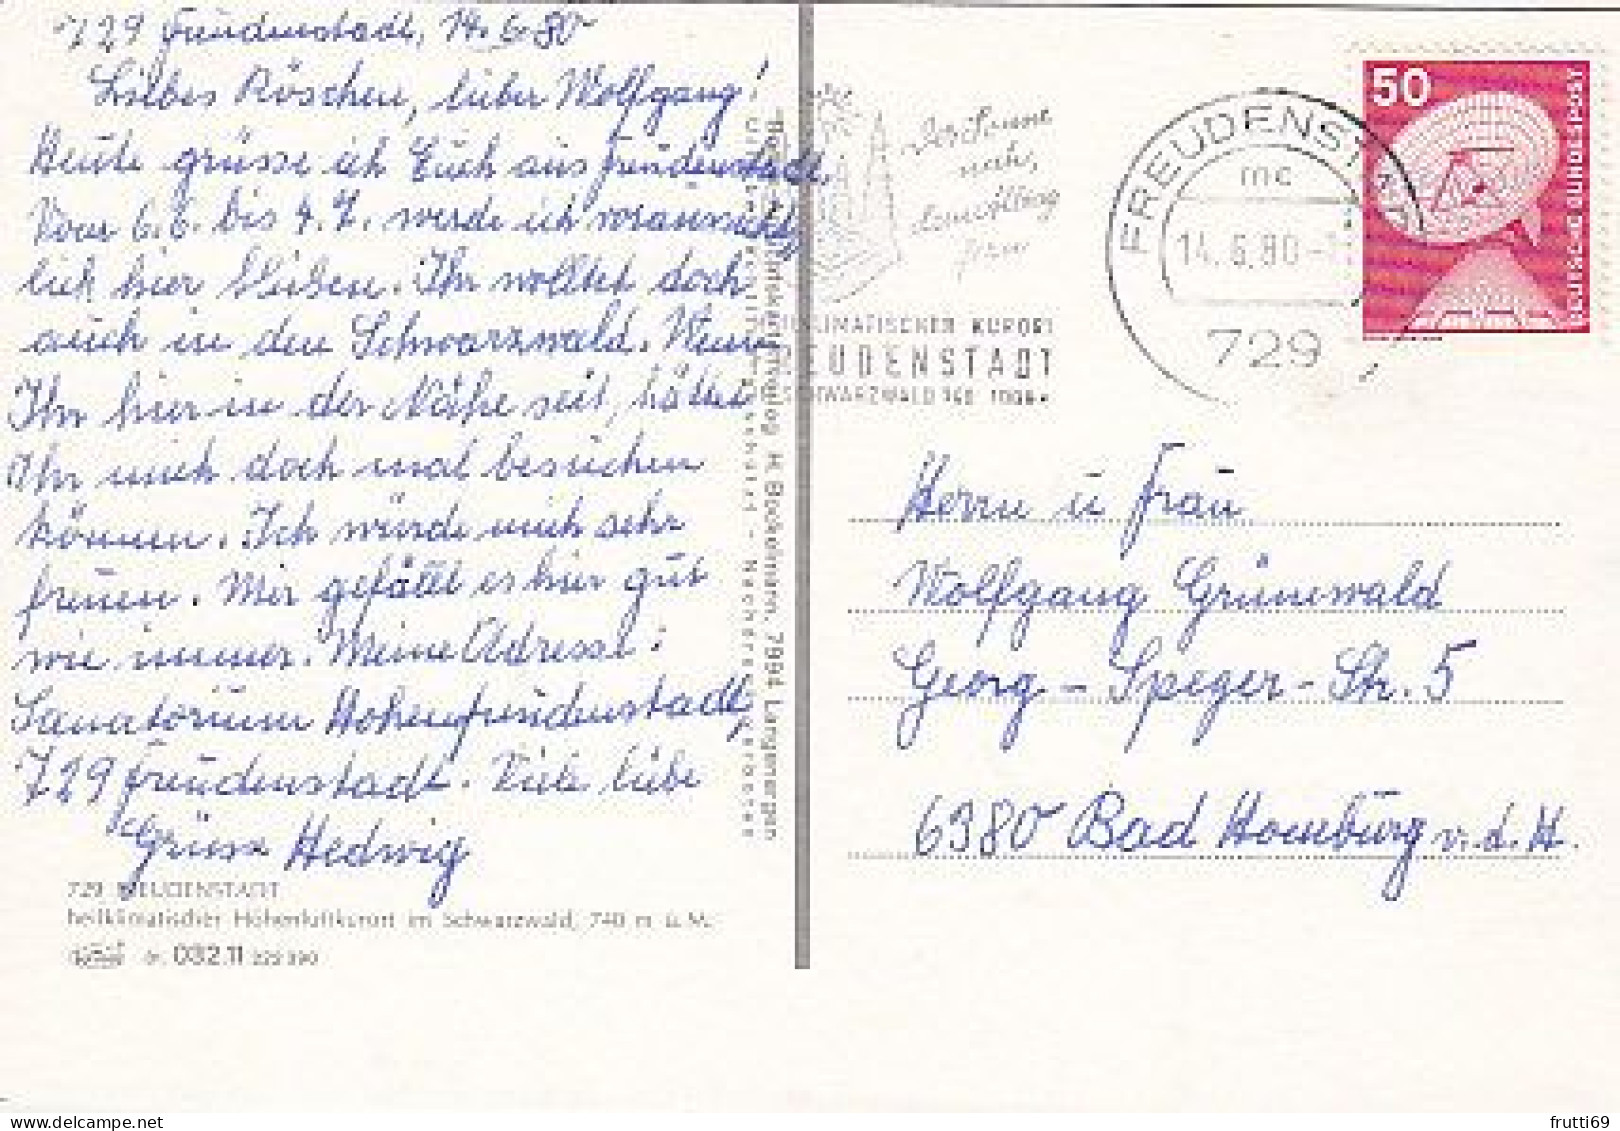 729 Freudenstadt, 14.6.80
Liebes Röschen, lieber Wolfgang!
Heute grüsse ich Euch aus Freudenstadt.
Vom 6.6. bis 4.7. werde ich voraussicht-
lich hier bleiben. Ihr wolltet doch
auch in den Schwarzwald. Wenn
Ihr hier in der Nähe seit, hättet
Ihr mich doch mal besuchen
können. Ich würde mich sehr
freuen. Mir gefällt es hier gut
wie immer. Meine Adresse:
Sanatorium Hohenfreudenstadt,
729 Freudenstadt. Viele liebe
Grüsse Hedwig
729 FREUDENSTADT
heilklimatischer Höhenluftkurort im Schwarzwald, 740 m ü. M.
032.11
H. Bockelmann, 7994 Langenargen
Der Sonne
nah,
KLIMATISCHER KURORT
EUDENSTADT
SCHWARZWALD
FREUDENSTADT
mc
14.6.80
729
50
DEUTSCHE BUNDESPOST
Herrn u Frau
Wolfgang Grünewald
Georg-Speyer-Str. 5
6380 Bad Homburg v. d. H.
frutti69